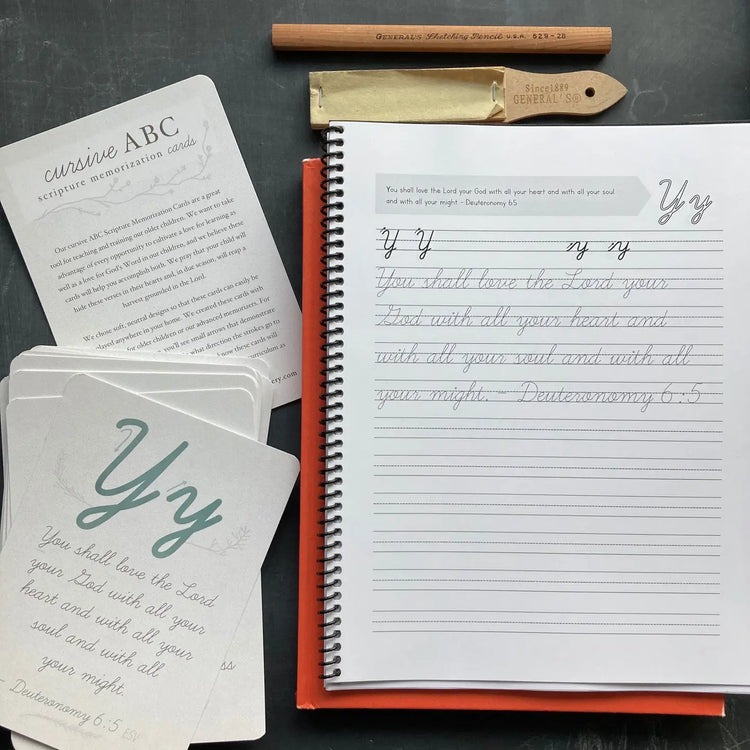 GENERAL'S Sketching Pencil U.S.A. 529-2B
Since1889
GENERAL'S®
cursive ABC
scripture memorization cards
Our cursive ABC Scripture Memorization Cards are a great
tool for teaching and training our older children. We want to take
advantage of every opportunity to cultivate a love for learning as
well as a love for God's Word in our children, and we believe these
cards will help you accomplish both. We pray that your child will
hide these verses in their hearts and, in due season, will reap a
harvest grounded in the Lord.
We chose soft, neutral designs so that these cards can easily be
played anywhere in your home. We created these cards with
for older children or our advanced memorizers. For
you'll see small arrows that demonstrate
what direction the strokes go to
how these cards will
curriculum as
ery.com
Yy
You shall love the Lord
your God with all your
heart and with all your
soul and with all
your might.
- Deuteronomy 6:5 ESV
You shall love the Lord your God with all your heart and with all your soul
and with all your might. - Deuteronomy 6:5
Yy
Y Y y y
You shall love the Lord your
God with all your heart and
with all your soul and with all
your might. - Deuteronomy 6:5